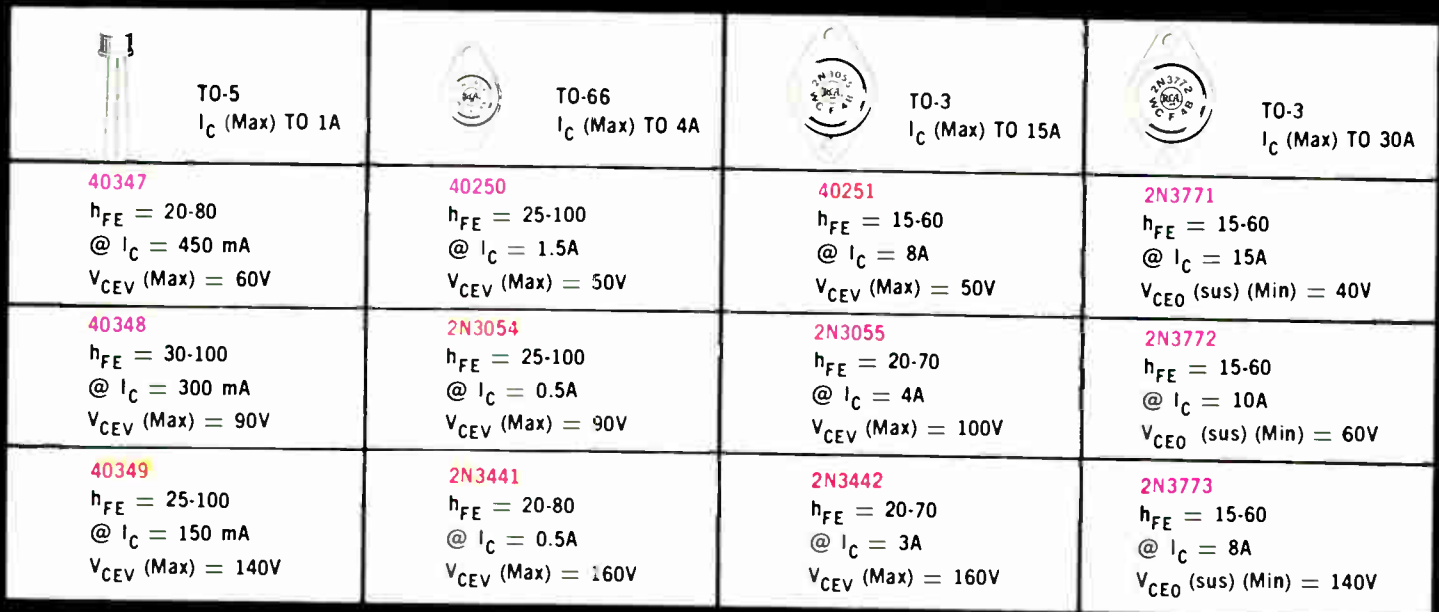 TO-5
I_C (Max) TO 1A
TO-66
I_C (Max) TO 4A
2N3055
RCA
WC F 4B
TO-3
I_C (Max) TO 15A
2N3772
RCA
WC F 4B
TO-3
I_C (Max) TO 30A
40347
h_FE = 20-80
@ I_C = 450 mA
V_CEV (Max) = 60V
40250
h_FE = 25-100
@ I_C = 1.5A
V_CEV (Max) = 50V
40251
h_FE = 15-60
@ I_C = 8A
V_CEV (Max) = 50V
2N3771
h_FE = 15-60
@ I_C = 15A
V_CEO (sus) (Min) = 40V
40348
h_FE = 30-100
@ I_C = 300 mA
V_CEV (Max) = 90V
2N3054
h_FE = 25-100
@ I_C = 0.5A
V_CEV (Max) = 90V
2N3055
h_FE = 20-70
@ I_C = 4A
V_CEV (Max) = 100V
2N3772
h_FE = 15-60
@ I_C = 10A
V_CEO (sus) (Min) = 60V
40349
h_FE = 25-100
@ I_C = 150 mA
V_CEV (Max) = 140V
2N3441
h_FE = 20-80
@ I_C = 0.5A
V_CEV (Max) = 160V
2N3442
h_FE = 20-70
@ I_C = 3A
V_CEV (Max) = 160V
2N3773
h_FE = 15-60
@ I_C = 8A
V_CEO (sus) (Min) = 140V